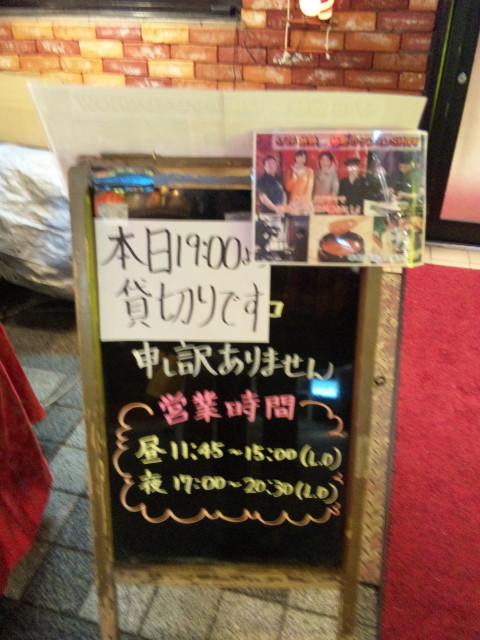 本日19:00よ
貸切りです
申し訳ありません
営業時間
昼 11:45～15:00(L.O)
夜 17:00～20:30(L.O)